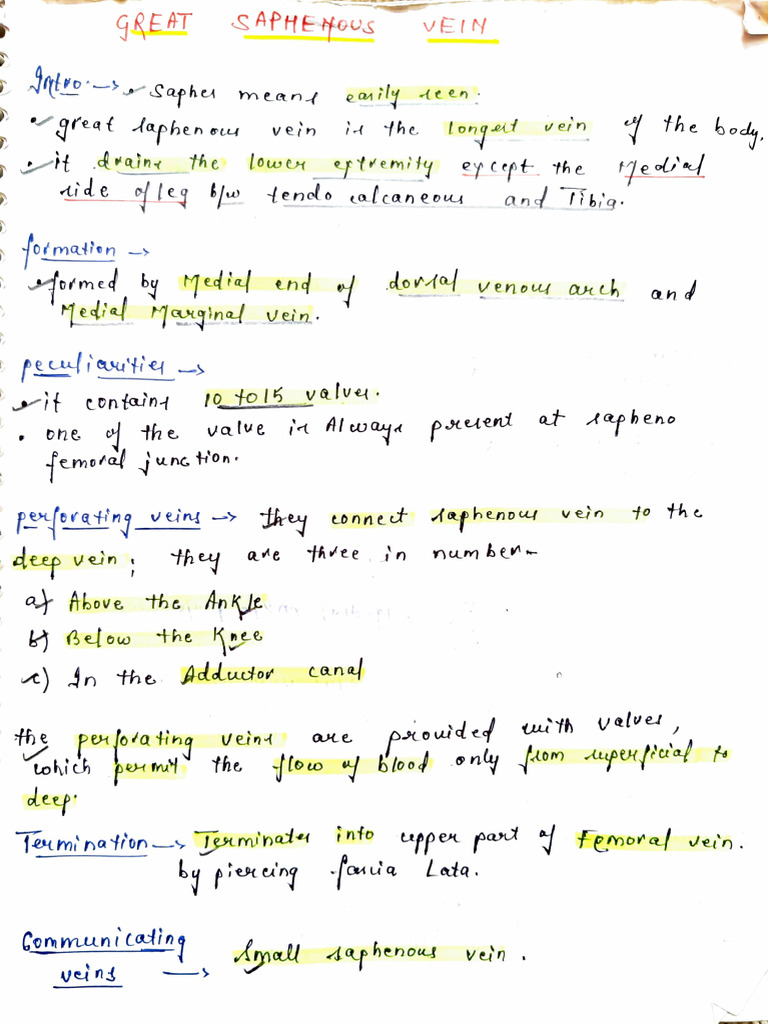 GREAT SAPHENOUS VEIN
Intro. → Saphes means easily seen.
• great saphenous vein is the longest vein of the body.
• it drains the lower extremity except the Medial
side of leg b/w tendo calcaneous and Tibia.
formation →
• formed by Medial end of dorsal venous arch and
Medial Marginal vein.
peculiarities →
• it contains 10 to 15 valves.
• one of the valve is Always present at sapheno
femoral junction.
perforating veins → They connect saphenous vein to the
deep vein; they are three in number-
a) Above the Ankle
b) Below the Knee
c) In the Adductor canal
the perforating veins are provided with valves,
which permit the flow of blood only from superficial to
deep.
Termination → Terminates into upper part of Femoral vein.
by piercing fascia Lata.
Communicating
veins → Small saphenous vein.